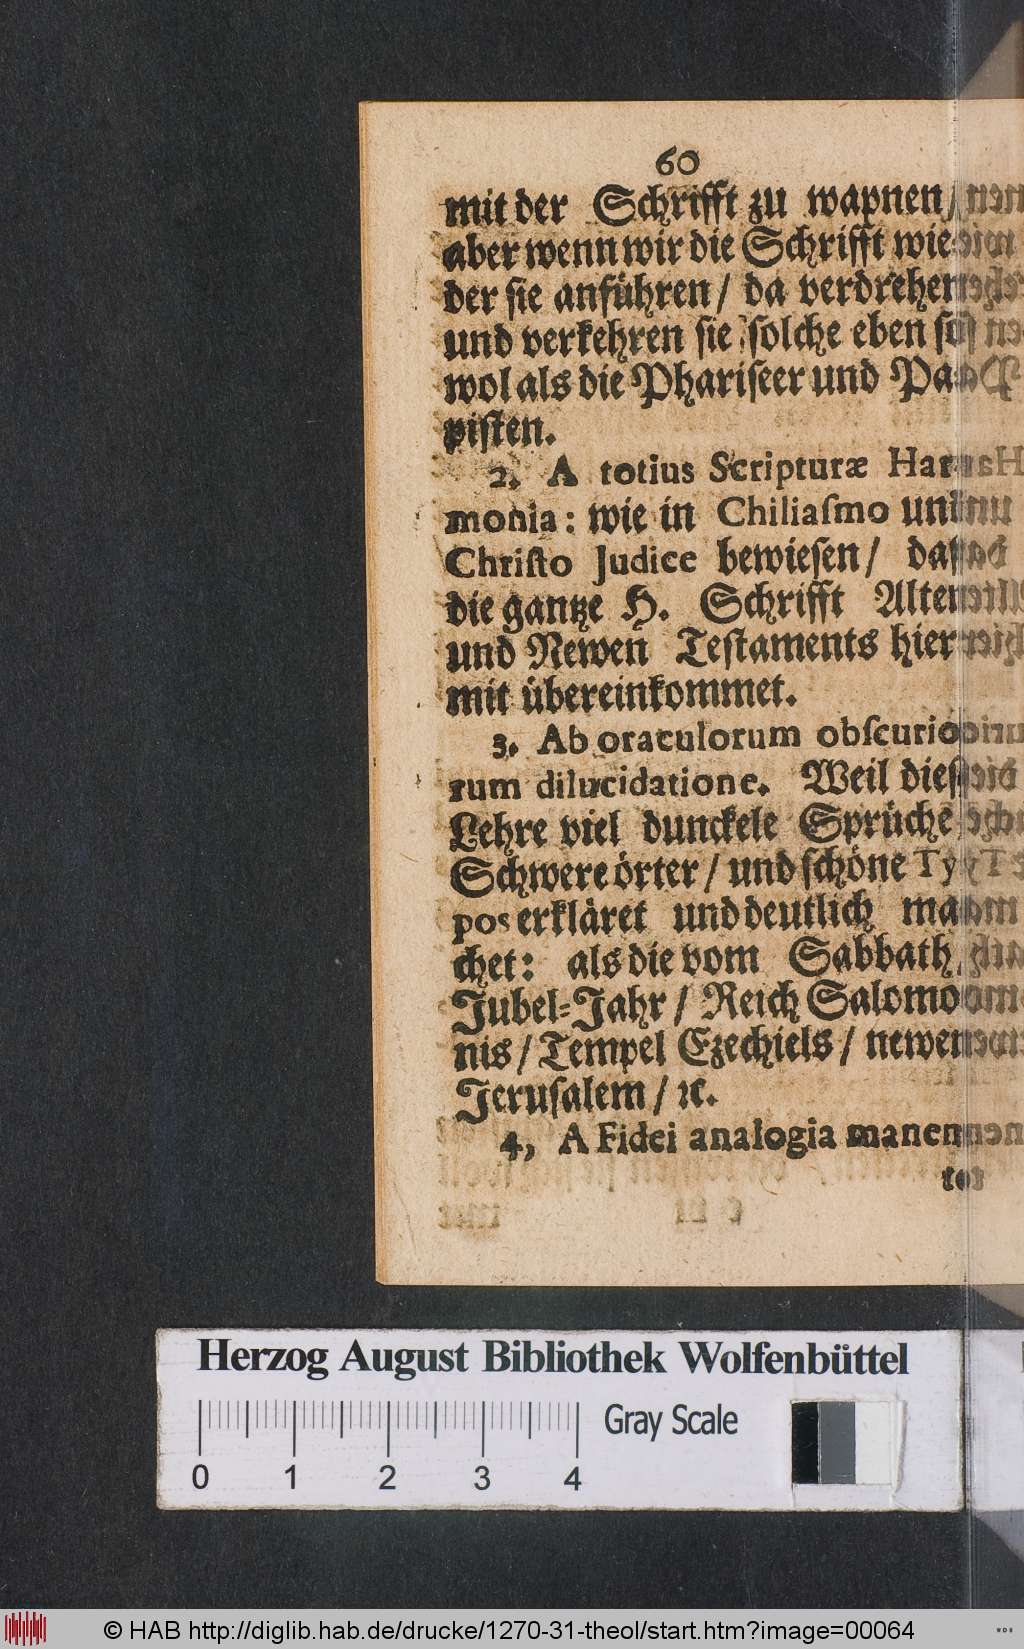 60
mit der Schrifft zu wapnen/
aber wenn wir die Schrifft wie-
der sie anführen/ da verdrehen
und verkehren sie solche eben so
wol als die Phariseer und Pa-
pisten.
2. A totius Scripturæ Har-
monia: wie in Chiliaſmo und
Chriſto Judice bewiesen/ daß
die gantze H. Schrifft Alten
und Newen Testaments hier
mit übereinkommet.
3. Ab oraculorum obſcurio-
rum dilucidatione. Weil diese
Lehre viel dunckele Sprüche
Schwere örter/ und schöne Ty-
pos erkläret und deutlich ma-
chet: als die vom Sabbath/
Jubel-Jahr/ Reich Salomo-
nis/ Tempel Ezechiels/ newen
Jerusalem/ ꝛc.
4, A Fidei analogia manen-
tot
Herzog August Bibliothek Wolfenbüttel
Gray Scale
0 1 2 3 4
© HAB http://diglib.hab.de/drucke/1270-31-theol/start.htm?image=00064